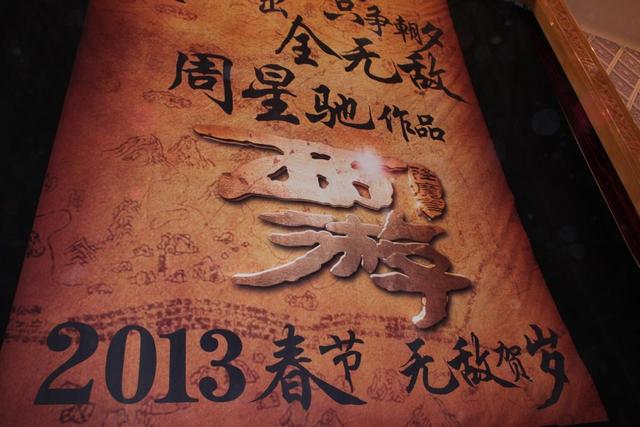 出 只争朝夕
全无敌
周星驰作品
西游
降魔篇
2013春节 无敌贺岁